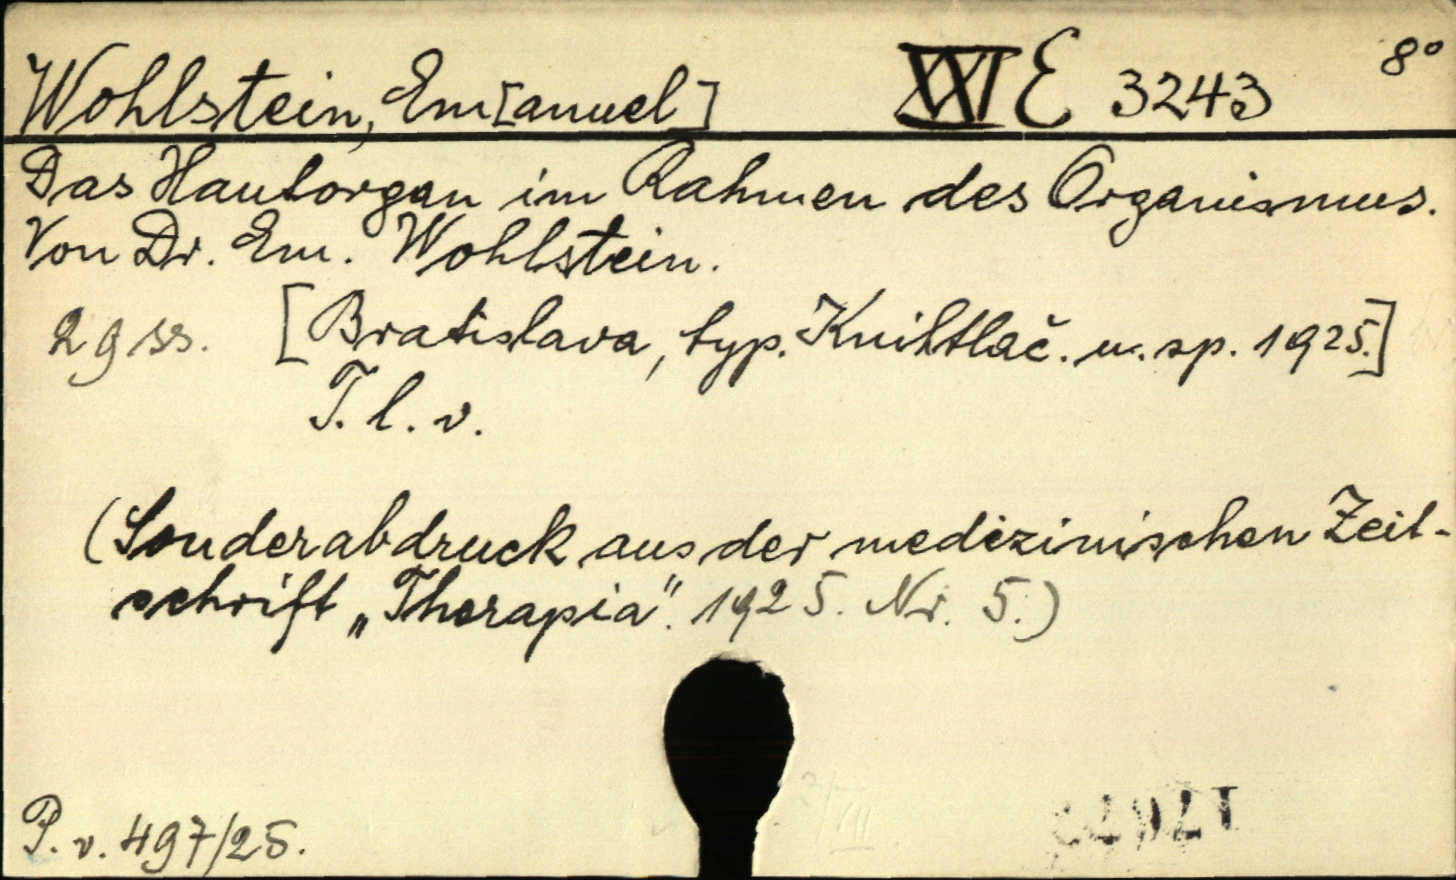 Wohlstein, Em[anuel] XXI E 3243 8°
Das Hautorgan im Rahmen des Organismus.
Von Dr. Em. Wohlstein.
29 ss. [Bratislava, typ. Knihtlač. u. sp. 1925.]
T. l. v.
(Sonderabdruck aus der medizinischen Zeit-
schrift „Therapia". 1925. Nr. 5.)
P. v. 497/25.